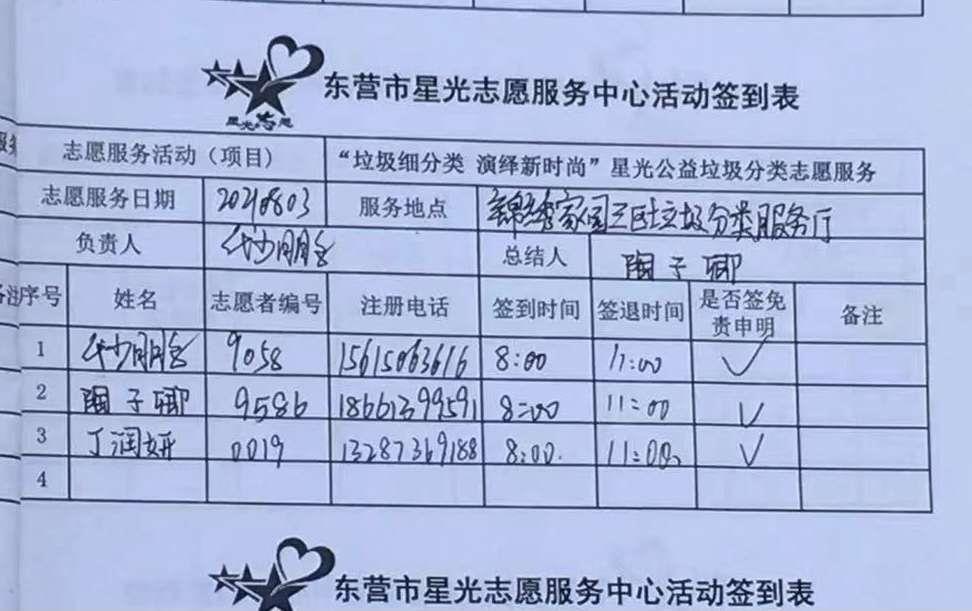 星光志愿
东营市星光志愿服务中心活动签到表
志愿服务活动（项目） “垃圾细分类 演绎新时尚”星光公益垃圾分类志愿服务
志愿服务日期 20210803 服务地点 锦绣家园三区垃圾分类服务厅
负责人 总结人 陶子聊
序号 姓名 志愿者编号 注册电话 签到时间 签退时间 是否签免责申明 备注
1 9058 15615063616 8:00 11:00 ✓
2 陶子聊 9586 18661399591 8:00 11:00 ✓
3 丁润妍 0019 13287369188 8:00. 11:00 ✓
4
东营市星光志愿服务中心活动签到表